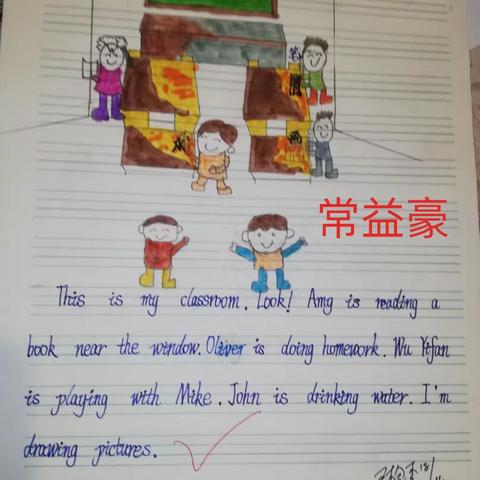 常益豪
This is my classroom. Look! Amy is reading a
book near the window. Oliver is doing homework. Wu Yifan
is playing with Mike. John is drinking water. I'm
drawing pictures.